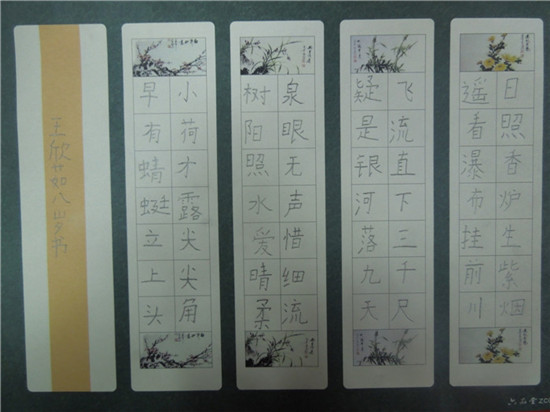 日照香炉生紫烟
遥看瀑布挂前川
飞流直下三千尺
疑是银河落九天
泉眼无声惜细流
树阳照水爱晴柔
小荷才露尖尖角
早有蜻蜓立上头
王欣茹八岁书